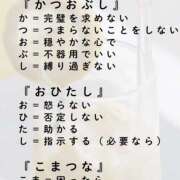 『かつおぶし』
か＝完璧を求めない
つ＝つまらないことをしない
お＝穏やかな心で
ぶ＝不器用でいい
し＝縛り過ぎない
『おひたし』
お＝怒らない
ひ＝否定しない
た＝助かる
し＝指示する（必要なら）
『こまつな』